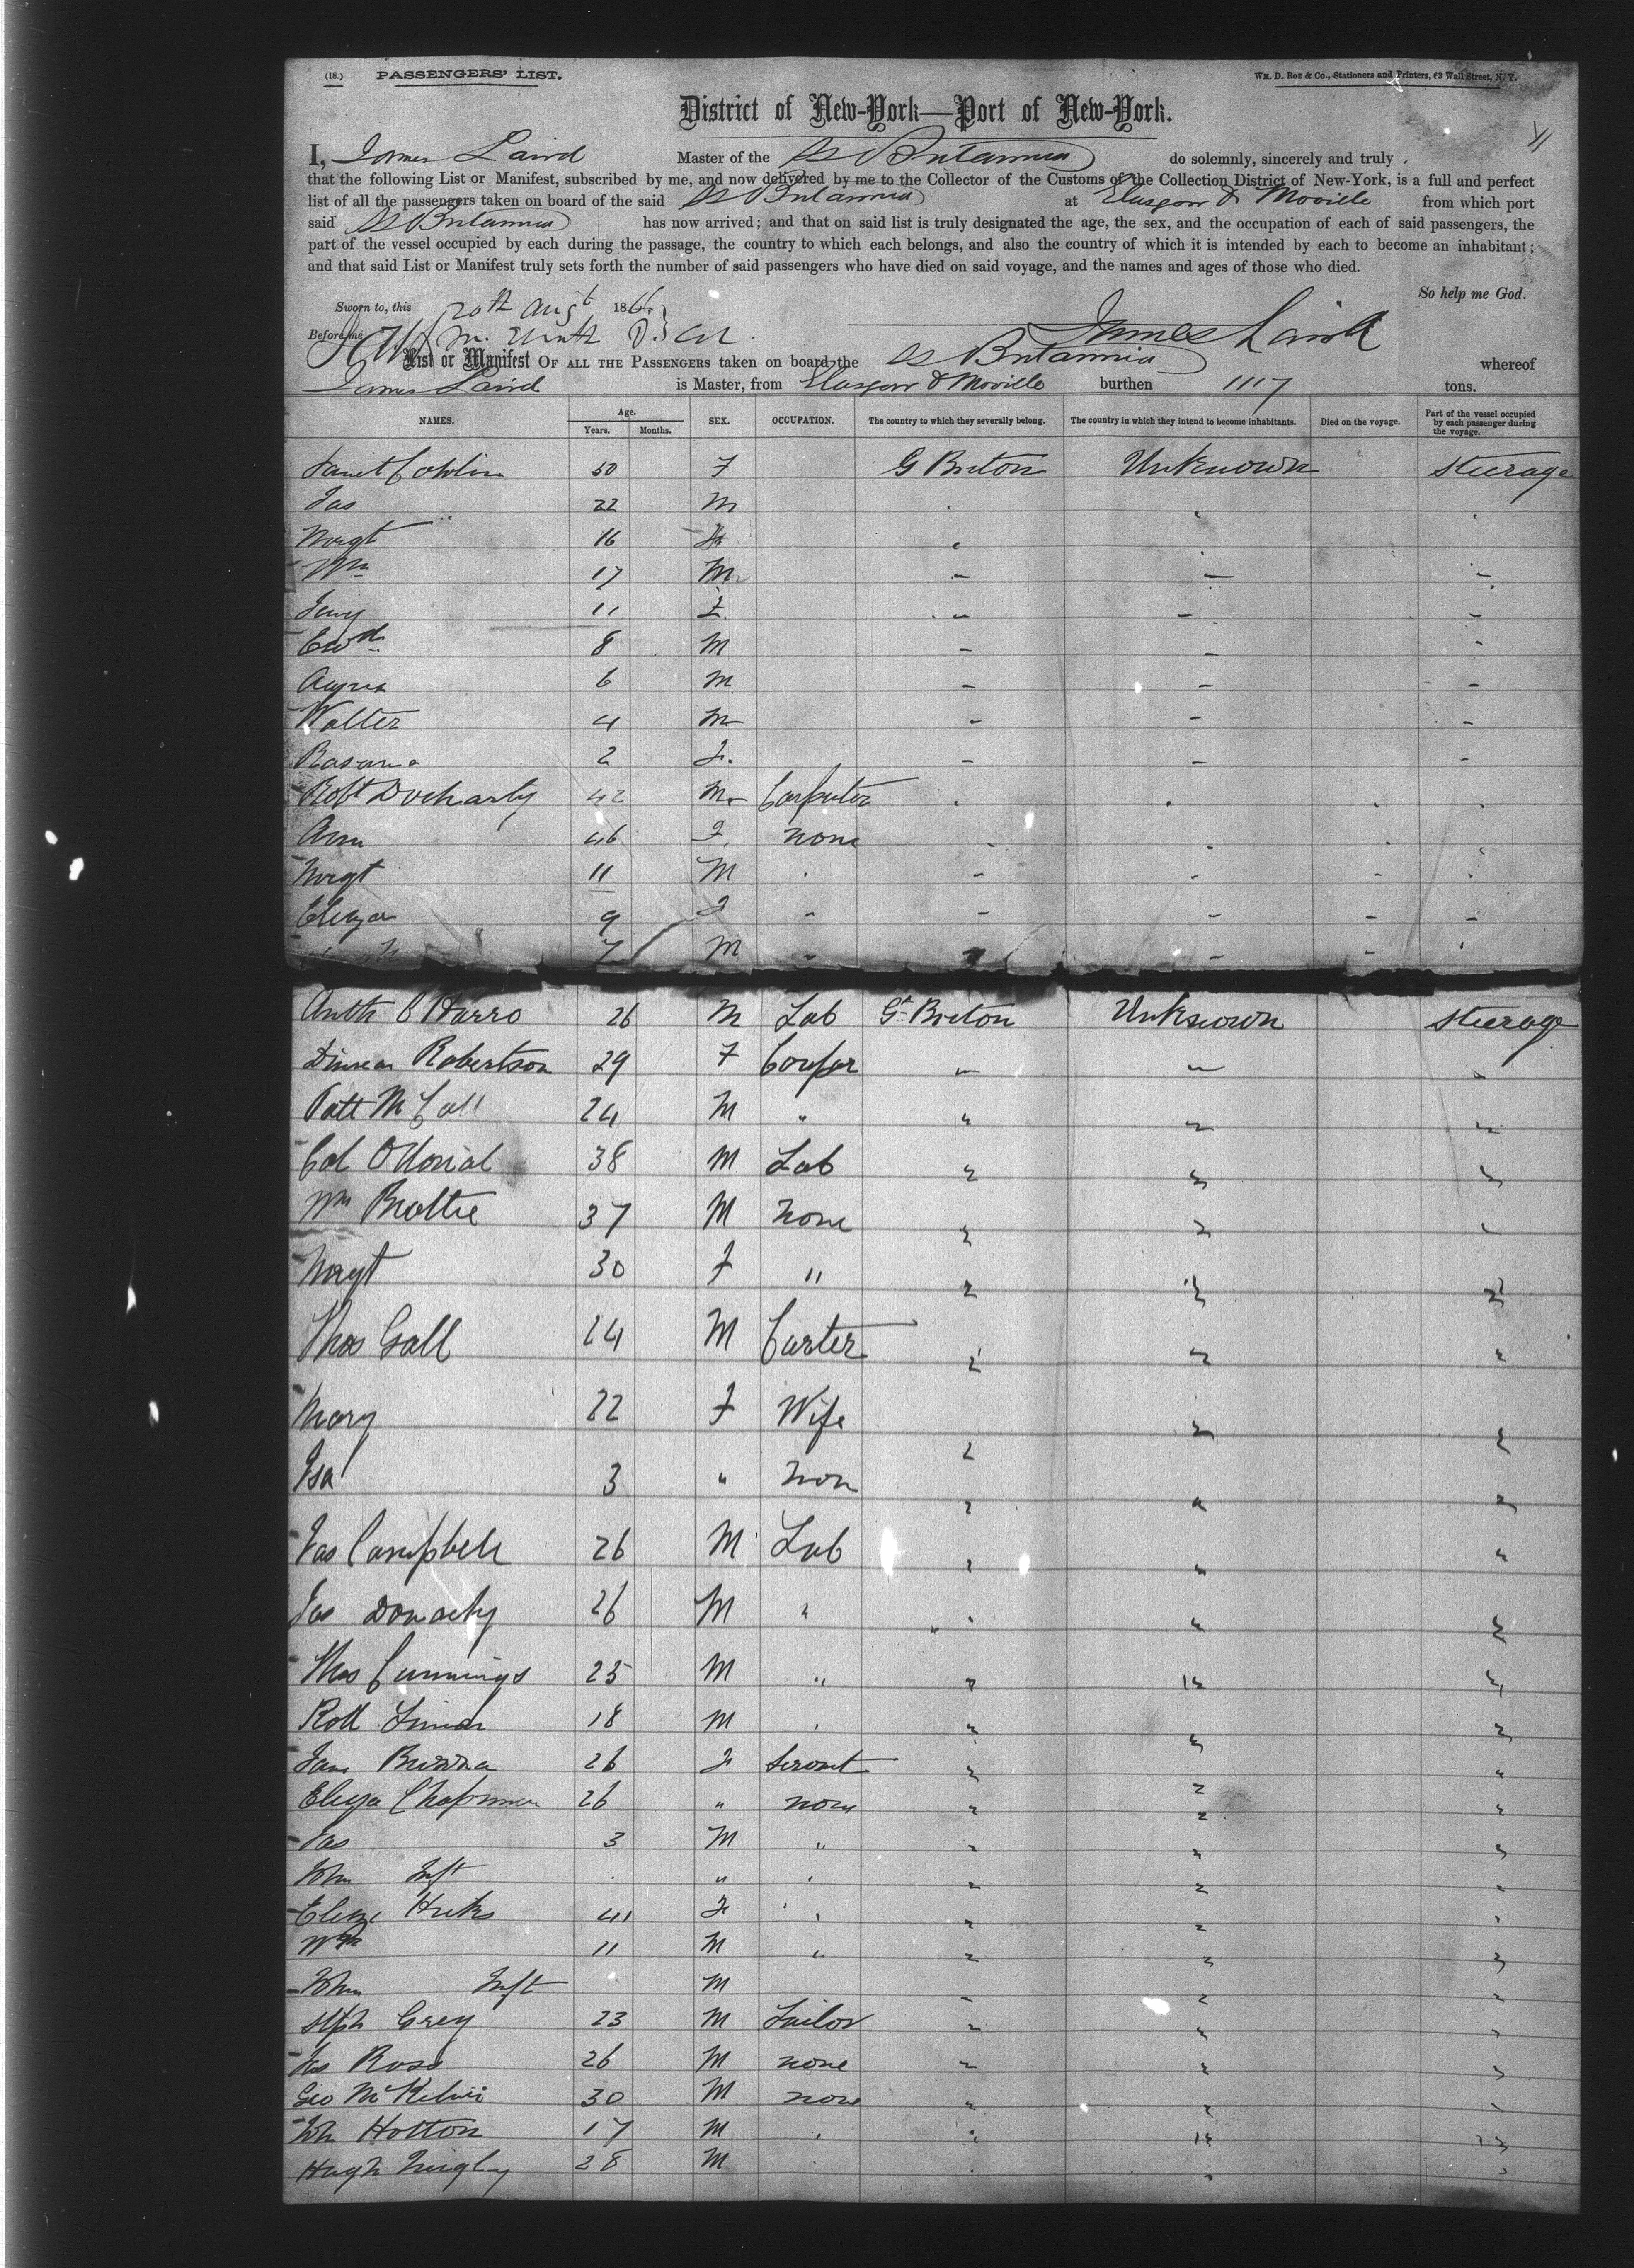 (18.) PASSENGERS' LIST. Wm. D. Roe & Co., Stationers and Printers, 63 Wall Street, N.Y.
District of New-York—Port of New-York.
I, James Laird Master of the SS Britannia do solemnly, sincerely and truly
that the following List or Manifest, subscribed by me, and now delivered by me to the Collector of the Customs of the Collection District of New-York, is a full and perfect
list of all the passengers taken on board of the said SS Britannia at Glasgow & Moville from which port
said SS Britannia has now arrived; and that on said list is truly designated the age, the sex, and the occupation of each of said passengers, the
part of the vessel occupied by each during the passage, the country to which each belongs, and also the country of which it is intended by each to become an inhabitant;
and that said List or Manifest truly sets forth the number of said passengers who have died on said voyage, and the names and ages of those who died.
So help me God.
Sworn to, this 20th Augt 186
Before me James Laird
List or Manifest OF ALL THE PASSENGERS taken on board the SS Britannia whereof
James Laird is Master, from Glasgow & Moville burthen 1117 tons.
NAMES. Age. Years. Months. SEX. OCCUPATION. The country to which they severally belong. The country in which they intend to become inhabitants. Died on the voyage. Part of the vessel occupied by each passenger during the voyage.
Janet 50 F G Breton Unknown Steerage
Jas 22 M
Margt 16
Wm 17 M
Jeny 11 F
Edwd 8 M
6 M
Walter 4 M
Rosanna 2 F.
Robt Docharty 42 M Carpenter
Ann 46 F. none
Margt 11 M
Eliza 9 F
7 M
Anth 26 M Lab Gt Breton Unknown Steerage
Robertson 29 F
Patt McCall 24 M "
38 M Lab
Wm Beattie 37 M none
Margt 30 F "
Thos Gall 24 M Carter
Mary 22 F Wife
Isa 3 " non
Jas Campbell 26 M Lab
Jas 26 M "
Thos Cummings 25 M "
18 M
26 F Servant
Eliza Chapman 26 " none
Jas 3 M "
John Inft "
Hicks 41 F
Wm 11 M "
John Inft M
Grey 23 M Tailor
Jas Ross 26 M none
Geo McKelvie 30 M none
John Hotton 17 M
Hugh 28 M